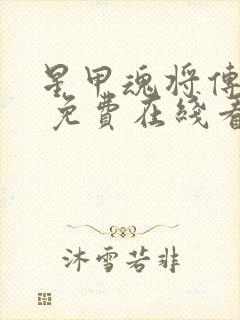 星甲魂将傳
免費在线看
沐雪若非